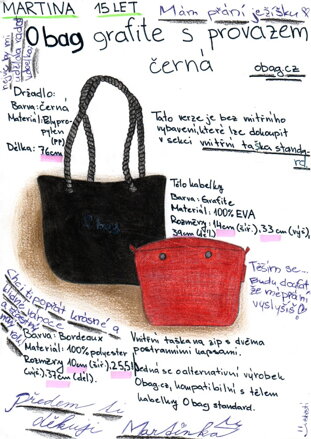 MARTINA 15 LET
Mám přání ježíšku
O bag grafite s provazem
černá
obag.cz
Držadlo:
Barva: černá
Materiál: Polypro-
pylen
(PP)
Délka: 76cm
Tato verze je bez vnitřního
vybavení, které lze dokoupit
v sekci vnitřní taška standa-
rd
Tělo kabelky
Barva: Grafite
Materiál: 100% EVA
Rozměry: 14cm (šíř.), 33 cm (výš),
39cm (dél.)
O bag
Těším se...
Budu doufat,
že mé přání
vyslyšíš
Chci ti popřát krásné a
Barva: Bordeaux
Materiál: 100% polyester
Rozměry 10cm (šíř.), 25,5
(výš), 37cm (dél.)
Vnitřní taška na zip s dvěma
postranními kapsami.
Jedná se o alternativní výrobek
Obag.cz, kompatibilní s tělem
kabelky Obag standard.
Předem ti
děkuji Martinka